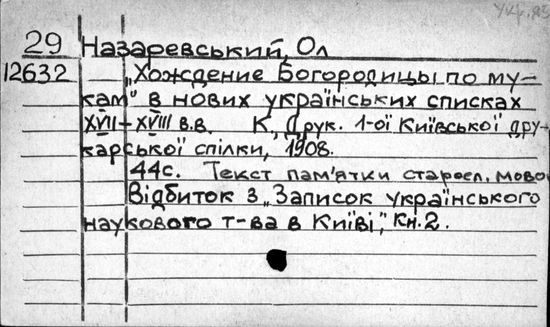 Укр.
29 Назаревський, Ол
12632 „Хождение Богородицы по му-
кам" в нових українських списках
XVII–XVIII в.в. К, Друк. 1-ої Київської дру-
карської спілки, 1908.
44с. Текст пам'ятки старосл. мово
Відбиток з „Записок українського
наукового т-ва в Київі", кн. 2.